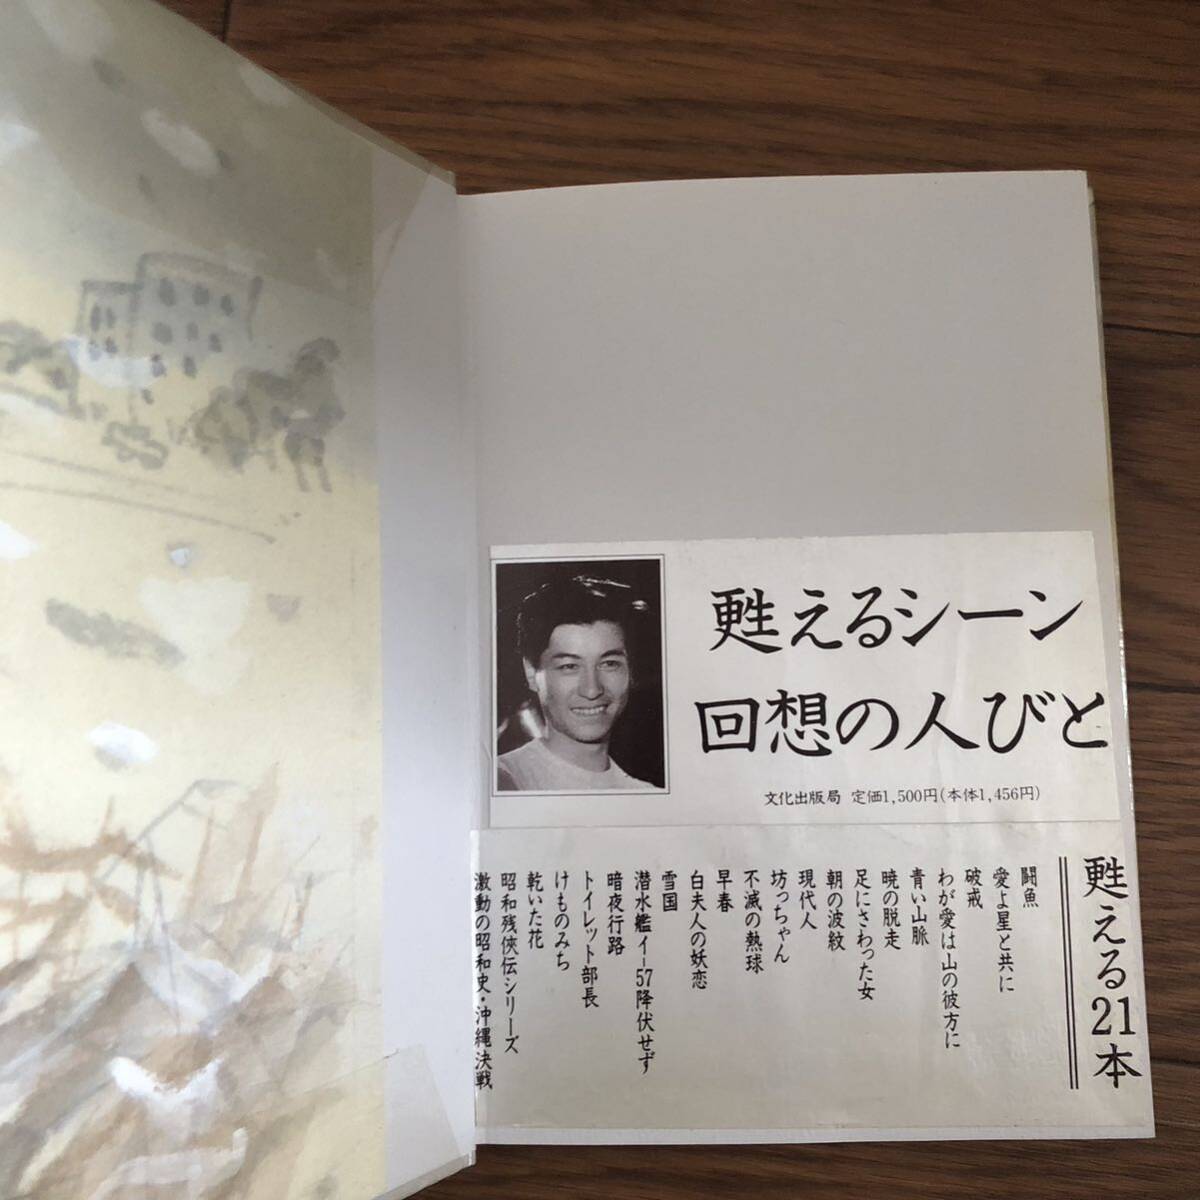 甦えるシーン
回想の人びと
文化出版局 定価1,500円(本体1,456円)
甦える21本
闘魚
愛よ星と共に
破戒
わが愛は山の彼方に
青い山脈
暁の脱走
足にさわった女
朝の波紋
現代人
坊っちゃん
不滅の熱球
早春
白夫人の妖恋
雪国
潜水艦イ-57降伏せず
暗夜行路
トイレット部長
けものみち
乾いた花
昭和残俠伝シリーズ
激動の昭和史・沖縄決戦